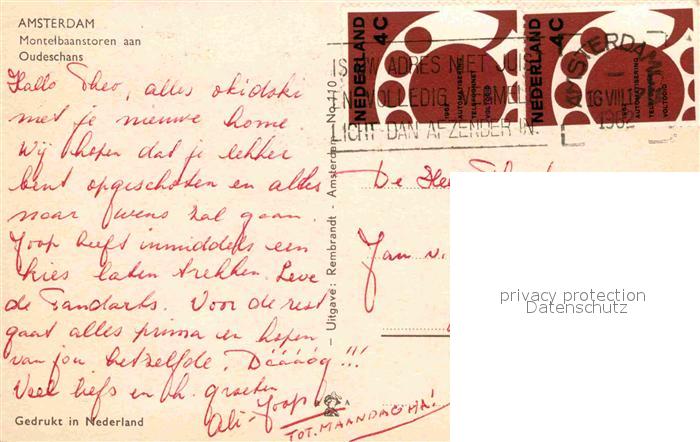 AMSTERDAM
Montelbaanstoren aan
Oudeschans
Hallo Theo, alles okidoki
met je nieuwe home.
Wij hopen dat je lekker
bent opgeschoten en alles
naar wens zal gaan.
Joop heeft inmiddels een
kies laten trekken. Leve
de Tandarts. Voor de rest
gaat alles prima en hopen
van jou hetzelfde. Dááááág!!!
Veel liefs en h. groeten
Ali - Joop
TOT. MAANDAG HA!
Gedrukt in Nederland
Uitgave: Rembrandt - Amsterdam No. 110
NEDERLAND
4C
1962 AUTOMATISERING
TELEFOONNET
VOLTOOID
NEDERLAND
4C
1962 AUTOMATISERING
TELEFOONNET
VOLTOOID
IS UW ADRES NIET JUIST
EN VOLLEDIG VERMELD
LICHT DAN AFZENDER IN.
AMSTERDAM
16 VIII 1
1962
De Heer
Jan v.
privacy protection
Datenschutz